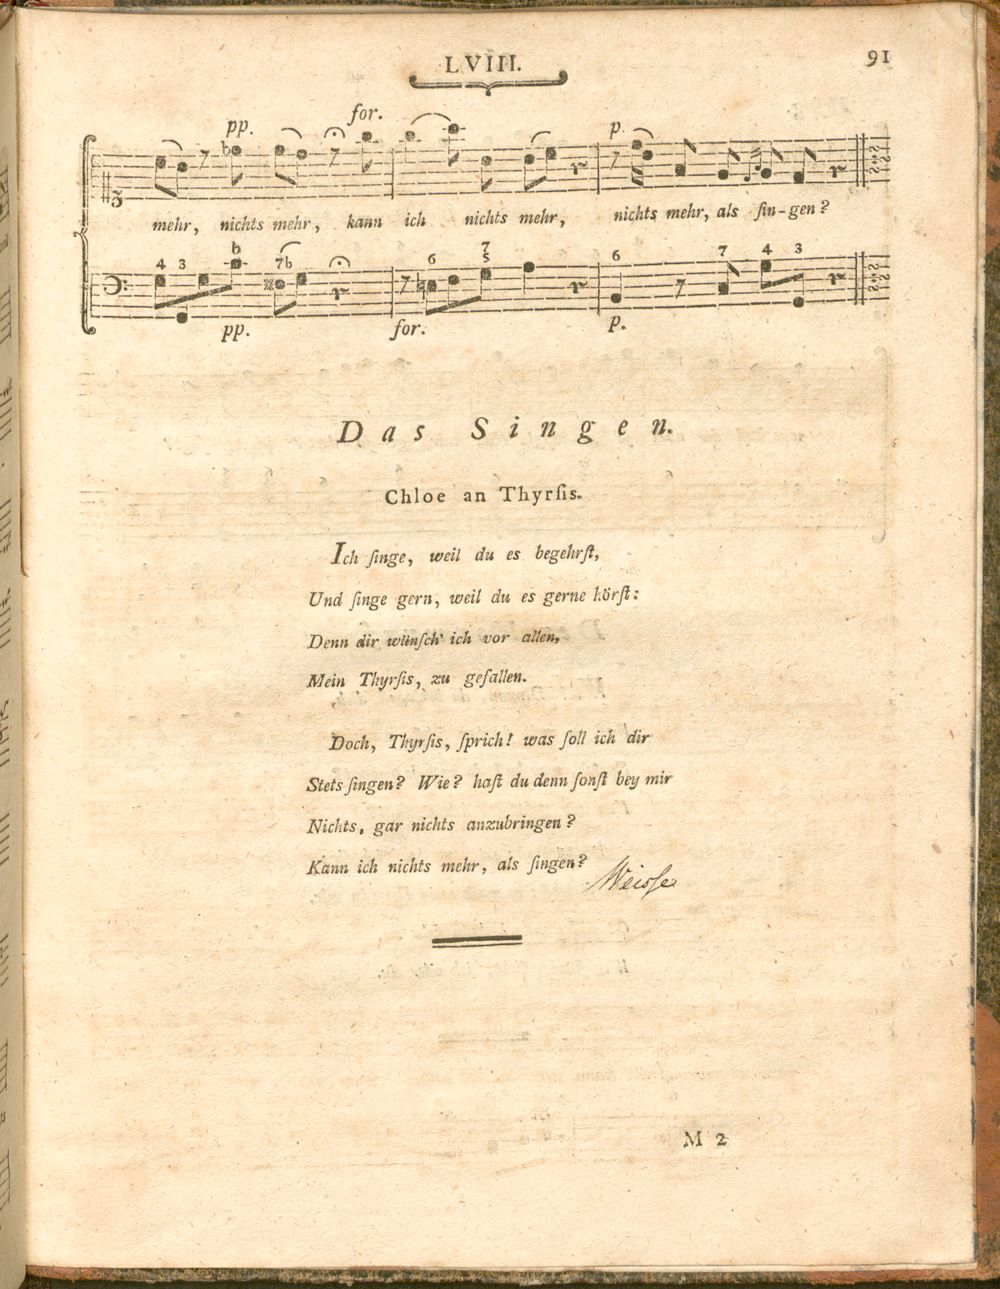 LVIII.
91
pp. for. p.
mehr, nichts mehr, kann ich nichts mehr, nichts mehr, als ſin-gen?
4 3 b 7b 6 7 5 6 7 4 3
pp. for. p.
Das Singen.
Chloe an Thyrſis.
Ich ſinge, weil du es begehrſt,
Und ſinge gern, weil du es gerne hörſt:
Denn dir wünſch' ich vor allen,
Mein Thyrſis, zu gefallen.
Doch, Thyrſis, ſprich! was ſoll ich dir
Stets ſingen? Wie? haſt du denn ſonſt bey mir
Nichts, gar nichts anzubringen?
Kann ich nichts mehr, als ſingen?
Weisse
M 2